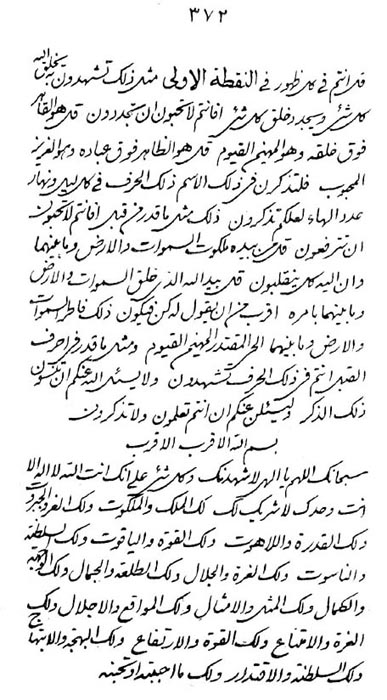 ٣٧٢
قل انتم في كل ظهور في النقطة الاولى مثل ذلك تشهدون به يخلق الله
كل شئ ويبعد خلق كل شئ افانتم لاتحبون ان تتجددون قل هو القاهر
فوق خلقه وهو المهيمن القيوم قل هو الظاهر فوق عباده وهو العزيز
المحبوب فلتذكرن في ذلك الاسم ذلك الحرف في كل ليل ونهار
عدد الهاء لعلكم تذكرون ذلك مثل ما قدر من قبل افانتم لاتحبون
ان ترفعون قل من بيده ملكوت السموات والارض وما بينهما
وان اليه كل ينقلبون قل بيد الله الذي خلق السموات والارض
وما بينهما بامره اقرب من ان يقول له كن فيكون ذلك فاطر السموات
والارض وما بينهما الحي المقتدر المهيمن القيوم ومثل ما قدر في احرف
القبل انتم في ذلك الحرف تشهدون ولا يسئل الله عنكم ان تنسون
ذلك الذكر وليسئلن عنكم ان انتم تعلمون ولا تذكرون
بسم الله الاقرب الاقرب
سبحانك اللهم يا الهي لاشهدنك وكل شئ على انك انت الله لا اله الا
انت وحدك لا شريك لك لك الملك والملكوت ولك العز والجبروت
ولك القدرة واللاهوت ولك القوة والياقوت ولك السلطنة
والناسوت ولك العزة والجلال ولك الطلعة والجمال ولك الوجهة
والكمال ولك المثل والامثال ولك المواقع والاجلال ولك
العزة والامتناع ولك القوة والارتفاع ولك البهجة والابتهاج
ولك السلطنة والاقتدار ولك ما احببته او تحبنه